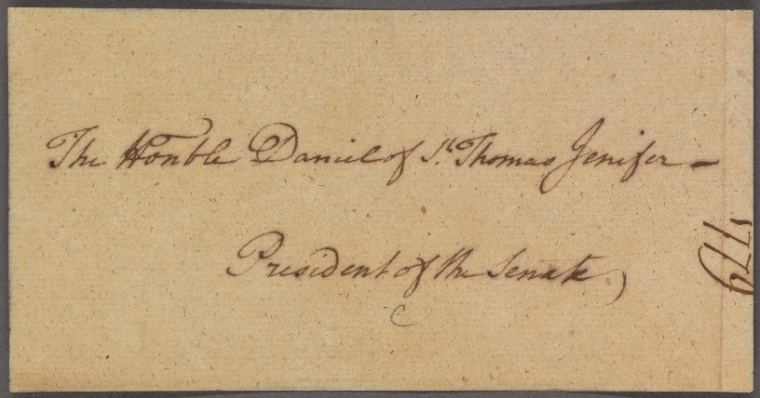 The Honble Daniel of St. Thomas Jenifer –
President of the Senate
C
1779